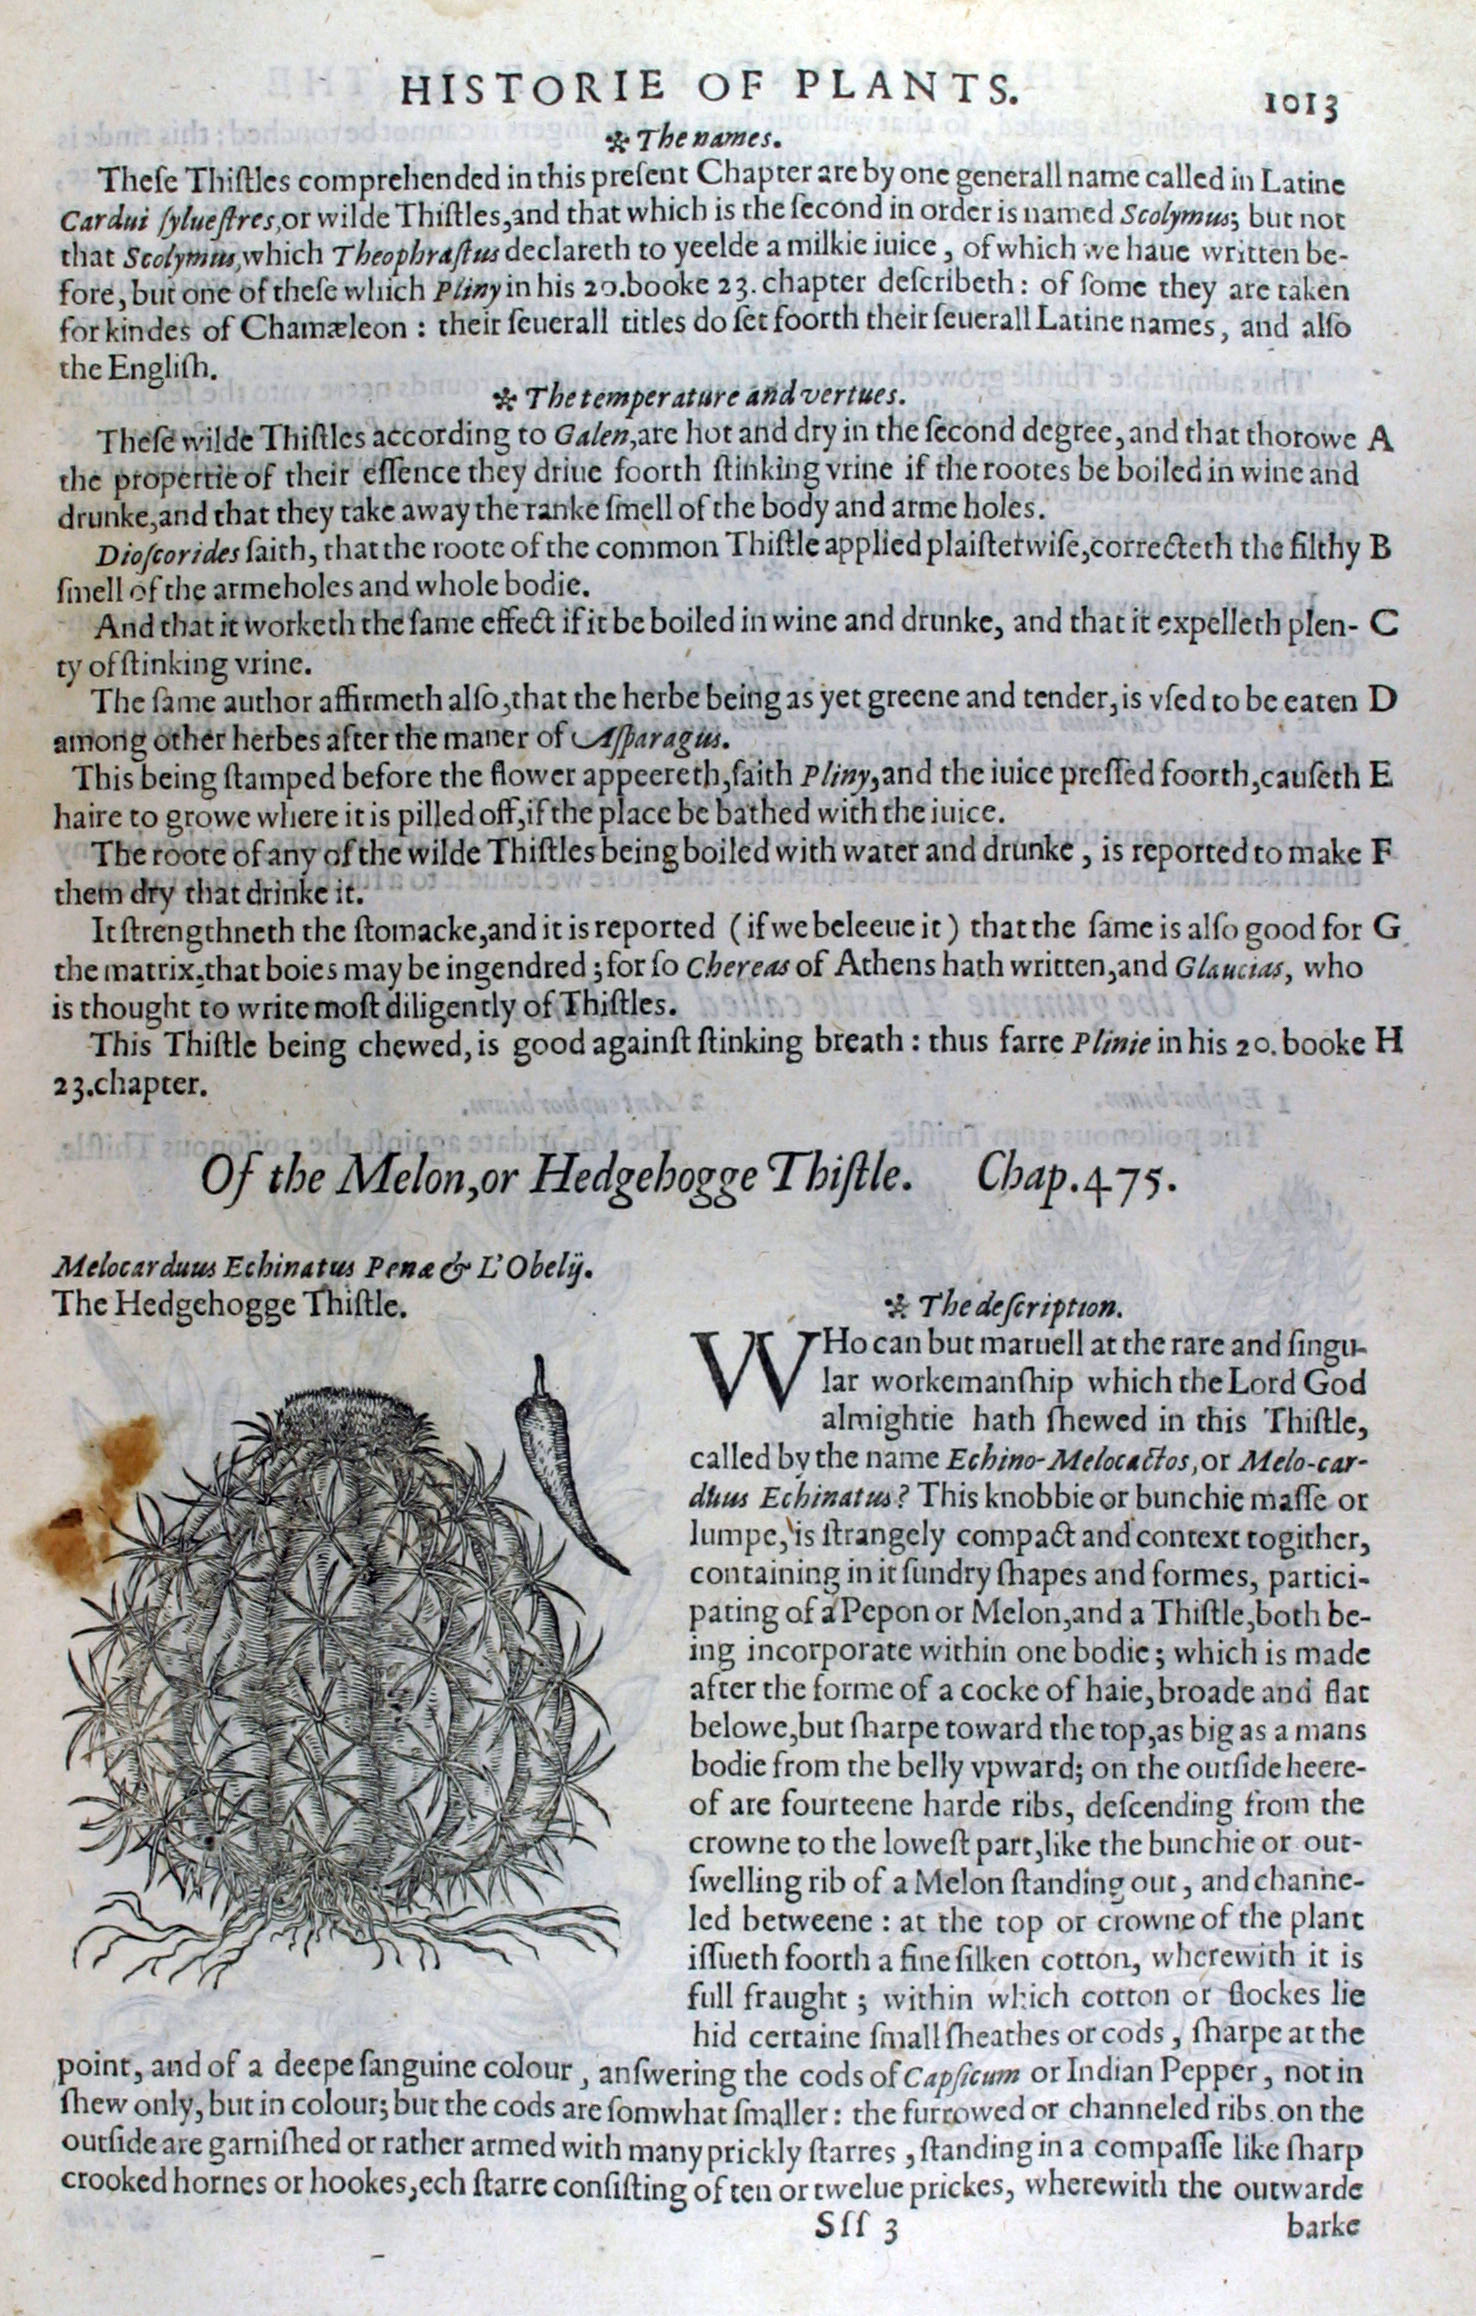 HISTORIE OF PLANTS. 1013
❊ The names.
Theſe Thiſtles comprehended in this preſent Chapter are by one generall name called in Latine
Cardui ſylueſtres, or wilde Thiſtles, and that which is the ſecond in order is named Scolymus; but not
that Scolymus, which Theophraſtus declareth to yeelde a milkie iuice, of which we haue written be-
fore, but one of theſe which Pliny in his 20. booke 23. chapter deſcribeth: of ſome they are taken
for kindes of Chamæleon: their ſeuerall titles do ſet foorth their ſeuerall Latine names, and alſo
the Engliſh.
❊ The temperature and vertues.
Theſe wilde Thiſtles according to Galen, are hot and dry in the ſecond degree, and that thorowe A
the propertie of their eſſence they driue foorth ſtinking vrine if the rootes be boiled in wine and
drunke, and that they take away the ranke ſmell of the body and arme holes.
Dioſcorides ſaith, that the roote of the common Thiſtle applied plaiſterwiſe, correcteth the filthy B
ſmell of the armeholes and whole bodie.
And that it worketh the ſame effect if it be boiled in wine and drunke, and that it expelleth plen- C
ty of ſtinking vrine.
The ſame author affirmeth alſo, that the herbe being as yet greene and tender, is vſed to be eaten D
among other herbes after the maner of Aſparagus.
This being ſtamped before the flower appeereth, ſaith Pliny, and the iuice preſſed foorth, cauſeth E
haire to growe where it is pilled off, if the place be bathed with the iuice.
The roote of any of the wilde Thiſtles being boiled with water and drunke, is reported to make F
them dry that drinke it.
It ſtrengthneth the ſtomacke, and it is reported (if we beleeue it) that the ſame is alſo good for G
the matrix, that boies may be ingendred; for ſo Chereas of Athens hath written, and Glaucias, who
is thought to write moſt diligently of Thiſtles.
This Thiſtle being chewed, is good againſt ſtinking breath: thus farre Plinie in his 20. booke H
23. chapter.
Of the Melon, or Hedgehogge Thiſtle. Chap. 475.
Melocarduus Echinatus Penæ & L'Obelij.
The Hedgehogge Thiſtle.
❊ The deſcription.
WHo can but maruell at the rare and ſingu-
lar workemanſhip which the Lord God
almightie hath ſhewed in this Thiſtle,
called by the name Echino-Melocactos, or Melo-car-
duus Echinatus? This knobbie or bunchie maſſe or
lumpe, is ſtrangely compact and context togither,
containing in it ſundry ſhapes and formes, partici-
pating of a Pepon or Melon, and a Thiſtle, both be-
ing incorporate within one bodie; which is made
after the forme of a cocke of haie, broade and flat
belowe, but ſharpe toward the top, as big as a mans
bodie from the belly vpward; on the outſide heere-
of are fourteene harde ribs, deſcending from the
crowne to the loweſt part, like the bunchie or out-
ſwelling rib of a Melon ſtanding out, and channe-
led betweene: at the top or crowne of the plant
iſſueth foorth a fine ſilken cotton, wherewith it is
full fraught; within which cotton or flockes lie
hid certaine ſmall ſheathes or cods, ſharpe at the
point, and of a deepe ſanguine colour, anſwering the cods of Capſicum or Indian Pepper, not in
ſhew only, but in colour; but the cods are ſomwhat ſmaller: the furrowed or channeled ribs on the
outſide are garniſhed or rather armed with many prickly ſtarres, ſtanding in a compaſſe like ſharp
crooked hornes or hookes, ech ſtarre conſiſting of ten or twelue prickes, wherewith the outwarde
Sſſ 3 barke